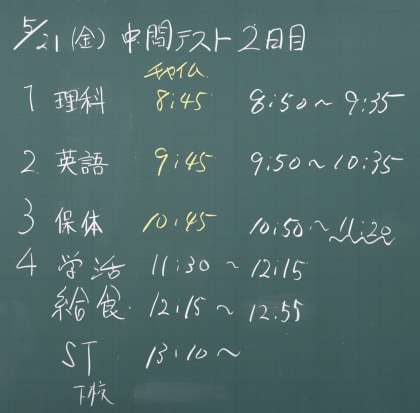 5/21(金) 中間テスト2日目
チャイム
1 理科 8:45 8:50〜9:35
2 英語 9:45 9:50〜10:35
3 保体 10:45 10:50〜11:20
4 学活 11:30〜12:15
給食 12:15〜12:55
ST 13:10〜
下校